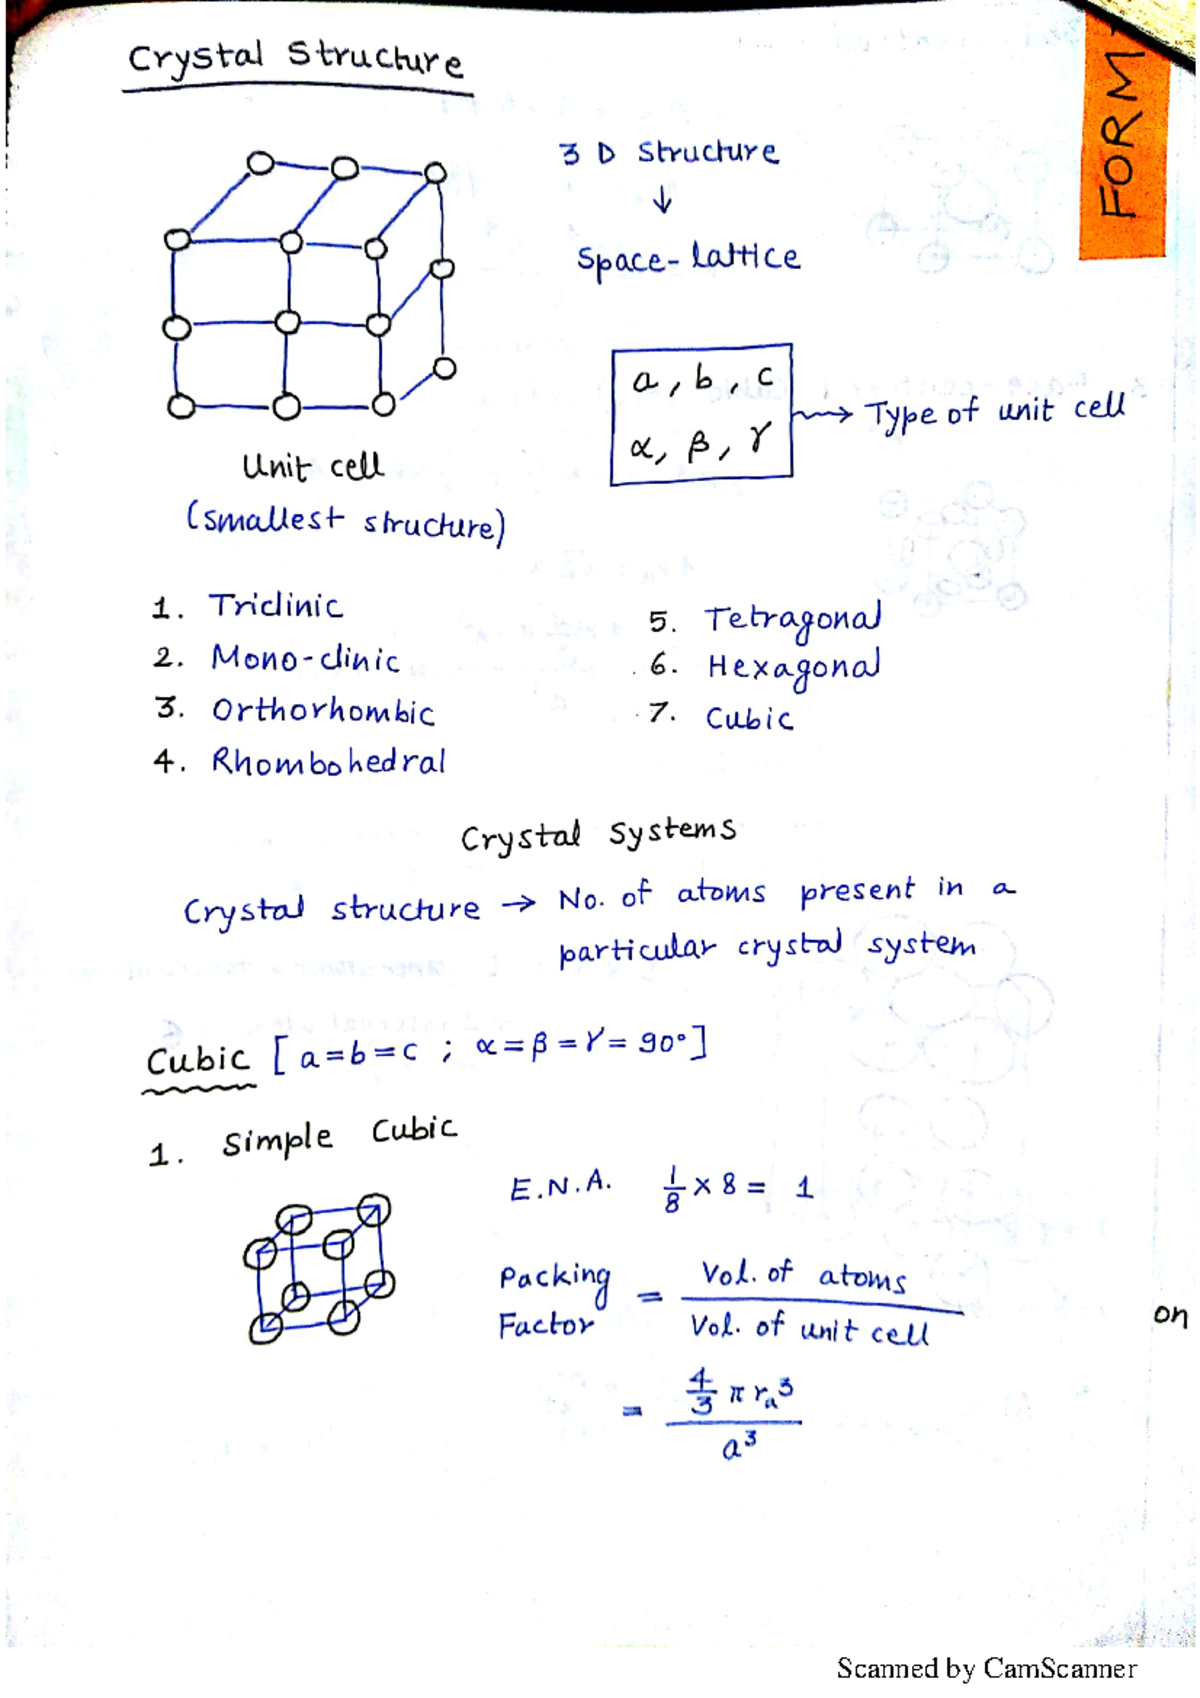 Crystal Structure
FORM
3 D Structure
↓
Space-lattice
a, b, c
α, β, γ
→ Type of unit cell
Unit cell
(smallest structure)
1. Triclinic
2. Mono-clinic
3. Orthorhombic
4. Rhombohedral
5. Tetragonal
6. Hexagonal
7. Cubic
Crystal Systems
Crystal structure → No. of atoms present in a
particular crystal system
Cubic [a=b=c ; α=β=γ=90°]
1. Simple Cubic
E.N.A. 1/8 x 8 = 1
Packing Factor = Vol. of atoms / Vol. of unit cell
= 4/3 π rₐ³ / a³
on
Scanned by CamScanner